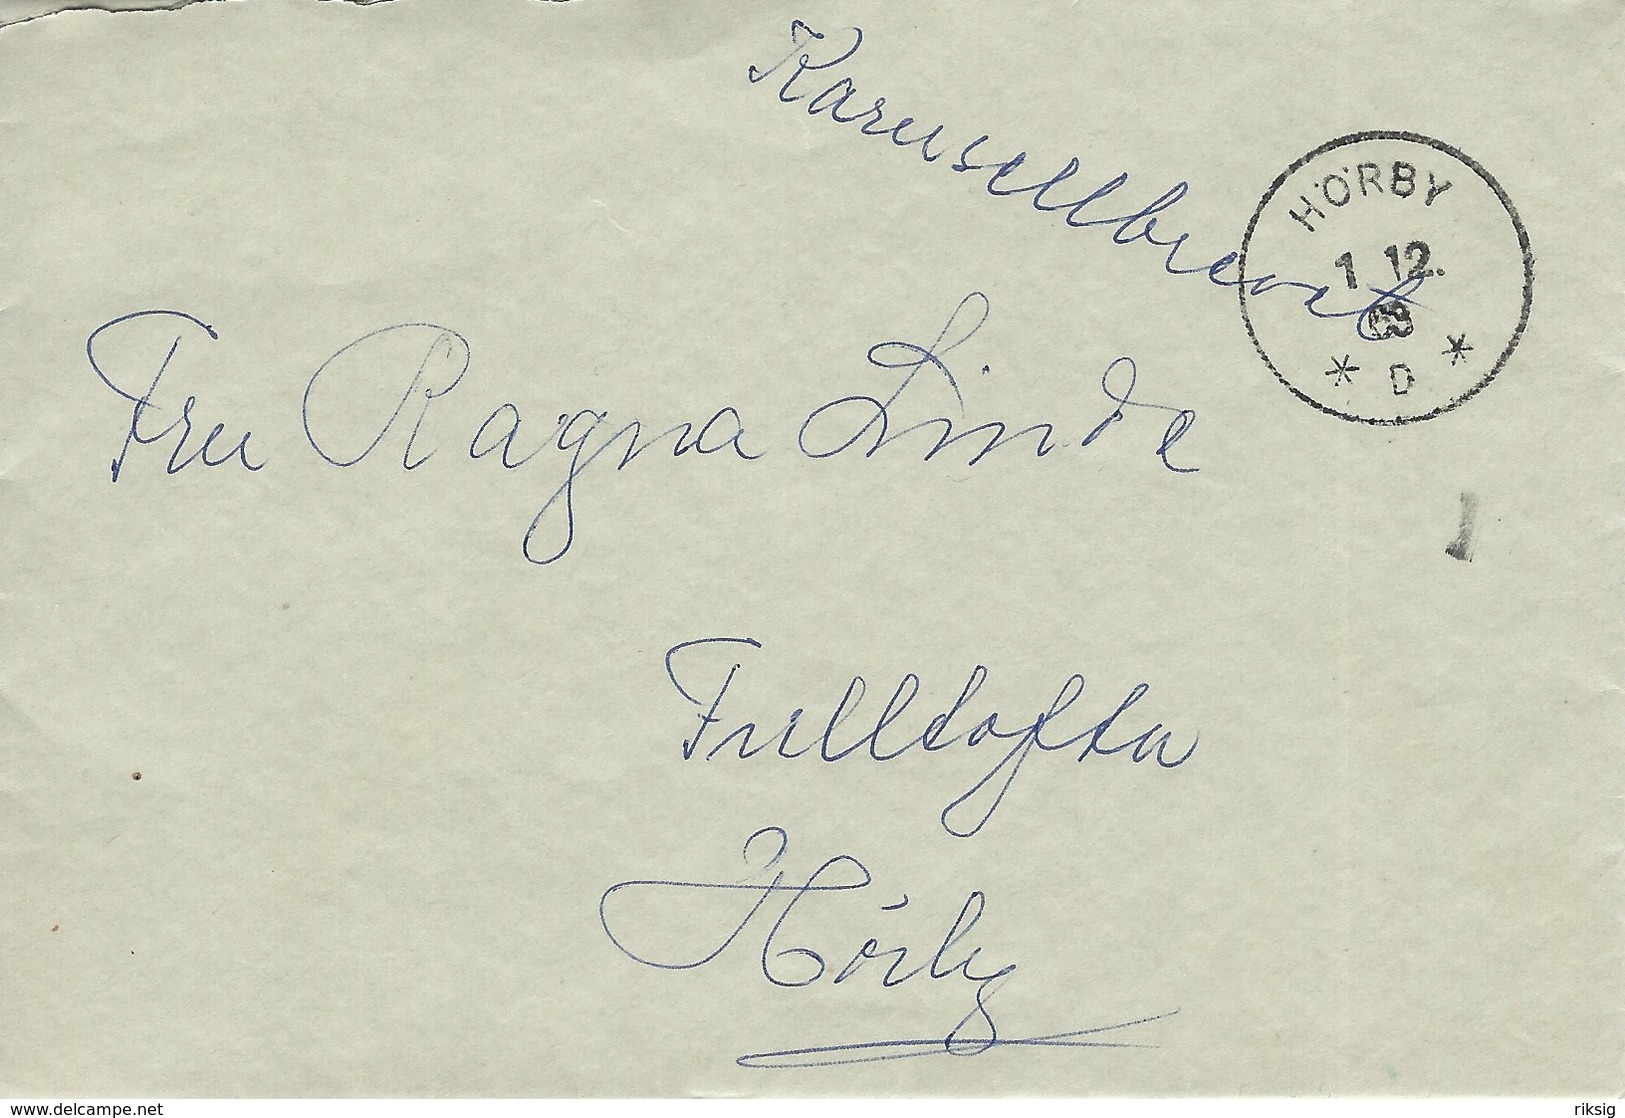 Karusellbrevet
HÖRBY
1 12.
69
* D *
Fru Ragna Linde
1
Fulltofta
Hörby
www.delcampe.net
riksig